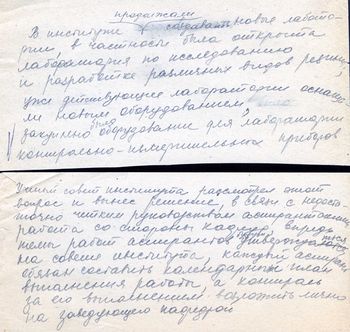 продолжали
В институте создавать новые лабора-
тории, в частности была открыта
лаборатория по исследованию
и разработке различных видов резины
уже действующие лаборатории оснаща-
ли новым оборудованием,
было
закуплено оборудование для лаборатории
контрольно-измерительных приборов
Ученый совет института рассмотрел этот
вопрос и вынес решение, в связи с недоста-
точно четким руководством аспирантами
работа со стороны кафедр, впредь
темы работ аспирантов
на совете института, каждый аспирант
обязан составить календарный план
выполнения работы, а контроль
за его выполнением возложить лично
на заведующего кафедрой